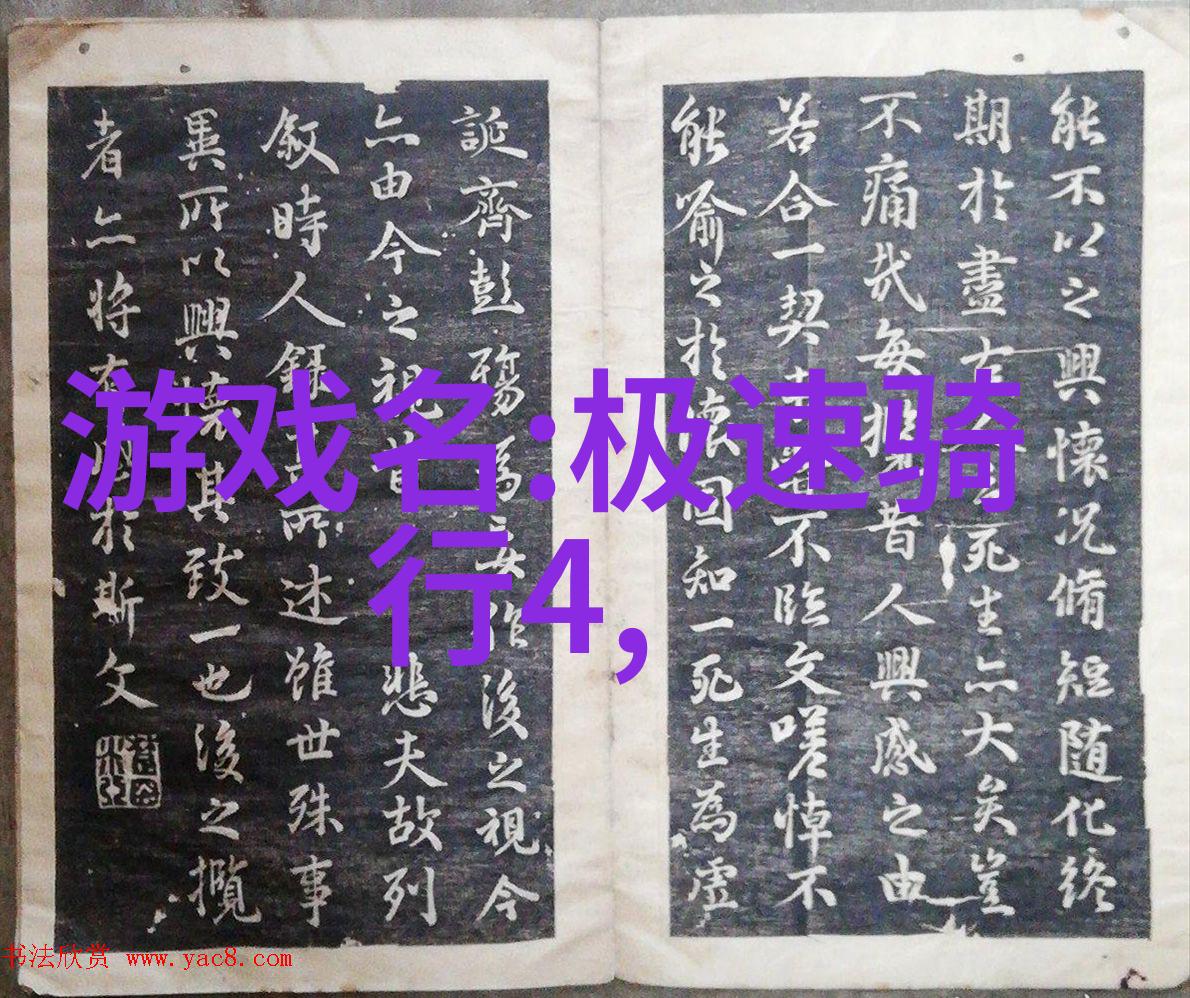 能不以之興懷況脩短随化終
期於盡古死生亦大矣豈
不痛哉每攬昔人興感之由
若合一契不臨文嗟悼不
能喻之於懷固知一死生為虛
誕齊彭殤為妄作後之視今
亦由今之視昔悲夫故列
叙時人録所述雖世殊事
異所以興懷其致一也後之攬
者亦將有於斯文
游戏名:极速骑
行4,
书法欣赏 www.yac8.com